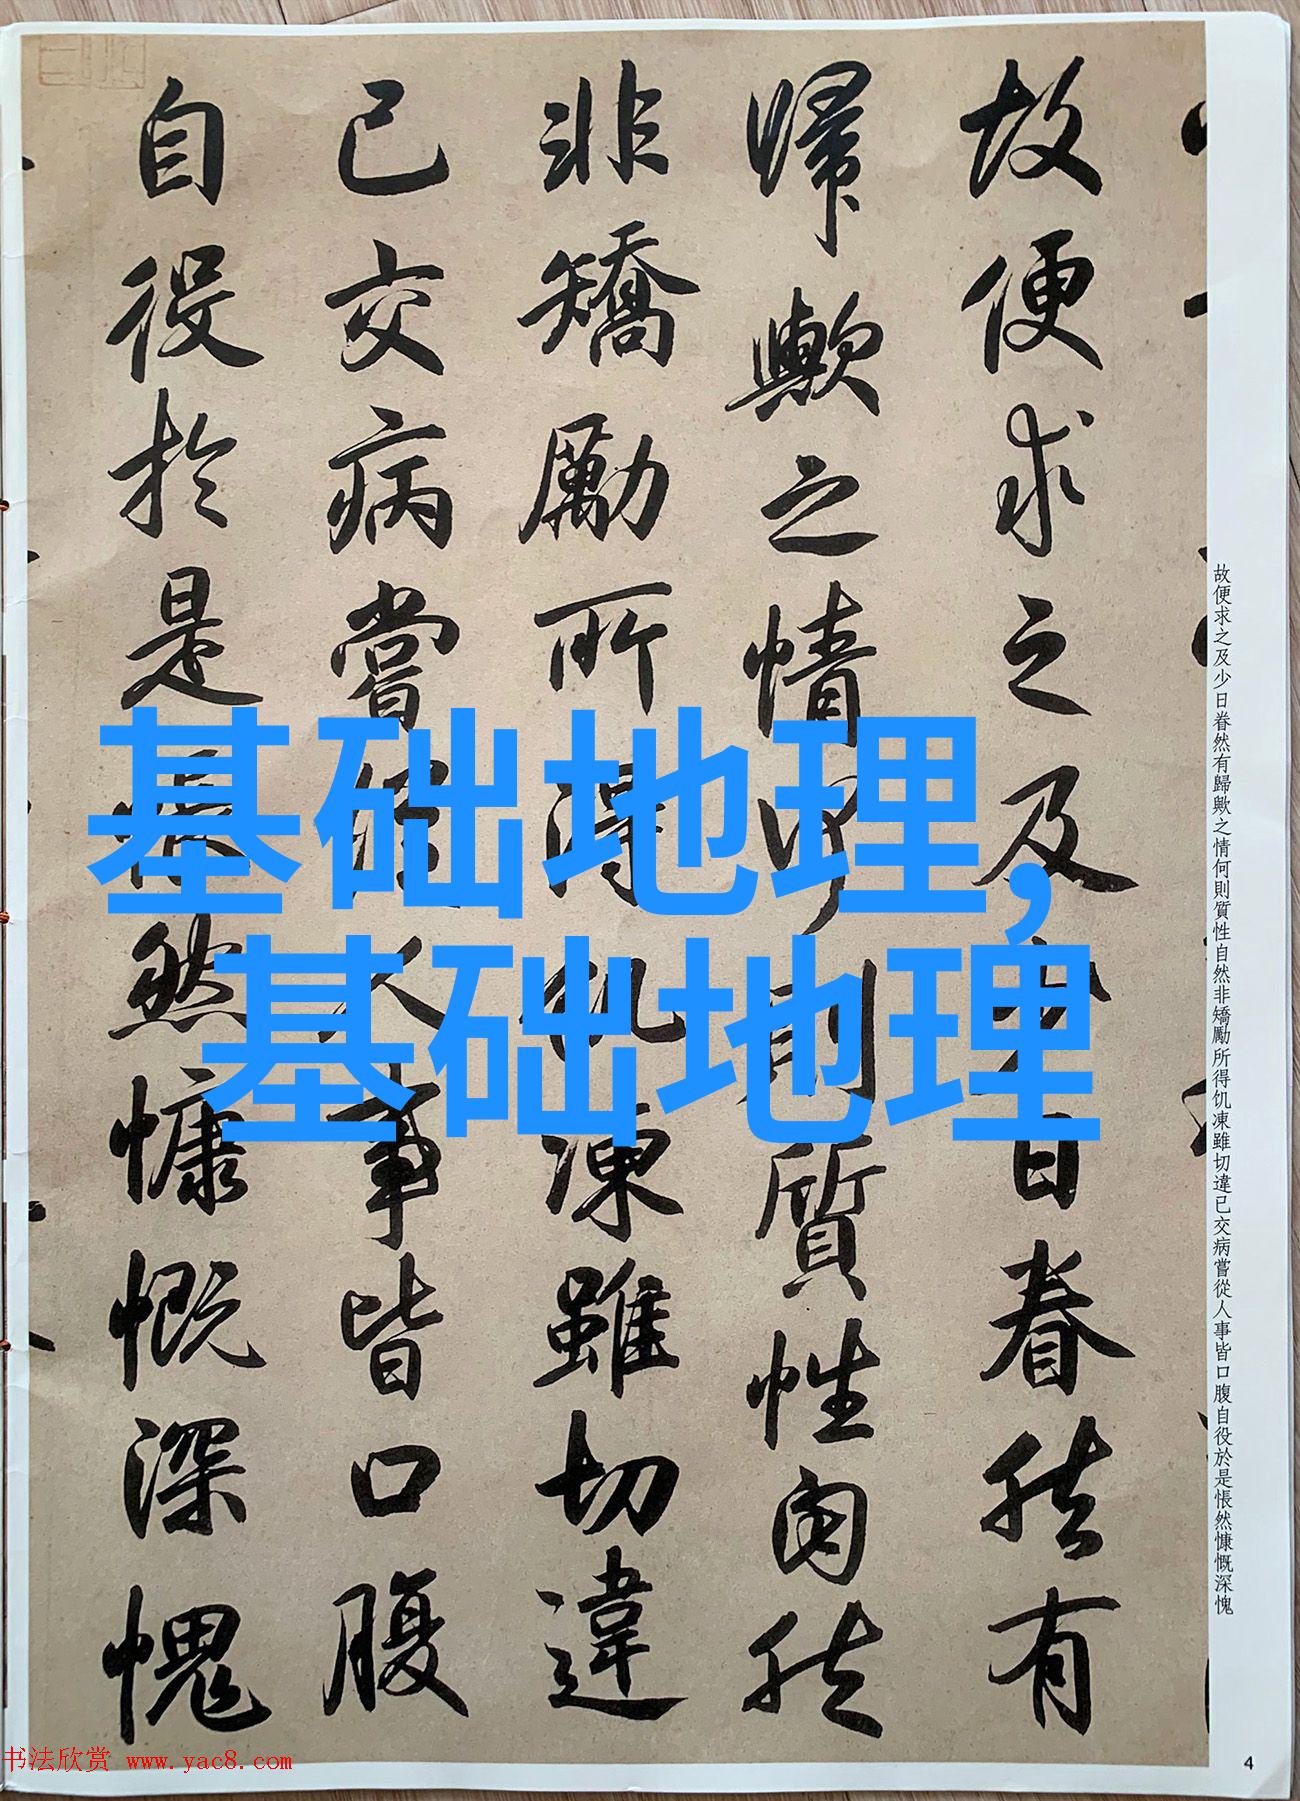 故便求之及少日眷然有
歸歟之情何則質性自然
非矯勵所得飢凍雖切違
已交病嘗從人事皆口腹
自役於是悵然慷慨深愧
故便求之及少日眷然有歸歟之情何則質性自然非矯勵所得饥凍雖切違已交病嘗從人事皆口腹自役於是悵然慷慨深愧
基础地理,
基础地理
书法欣赏 www.yac8.com
4